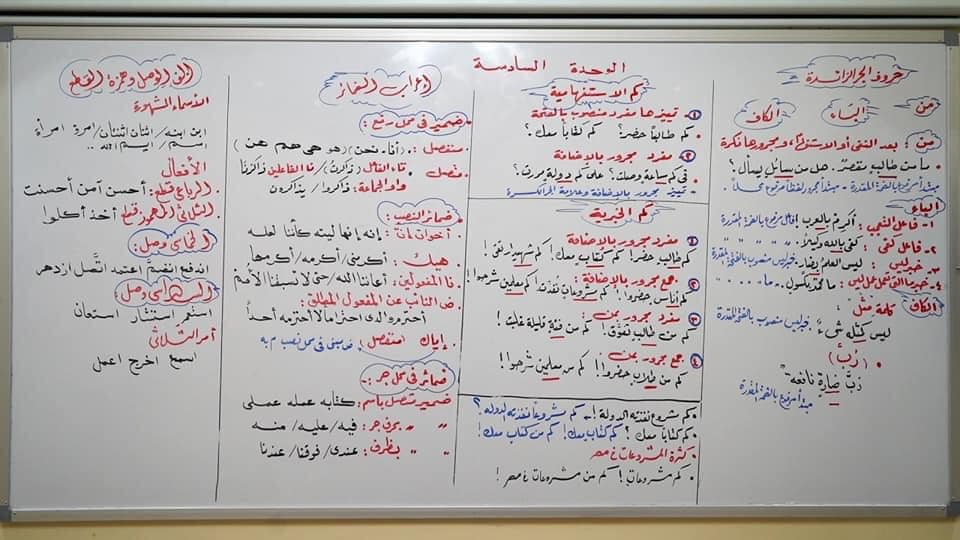 الوحدة السادسة
حروف الجر الزائدة
من
الباء
الكاف
من: بعد النفى أو الاستفهام، ومجرورها نكرة
ما من طالبٍ مقصّرٌ. هل من سائلٍ يسأل؟
الباء
١- فاعل التعجب: أكرم بالعرب!
٢- فاعل كفى: كفى بالله وكيلاً.
٣- خبر ليس: ليس العلمُ بضارٍ. خبر ليس منصوب بالفتحة المقدرة
٤- خبر ما التى تعمل عمل ليس: ما محمدٌ بكسولٍ.
الكاف
كلمة مثل:
ليس كمثله شىءٌ خبر ليس منصوب بالفتحة المقدرة
• (رُبَّ)
رُبَّ ضارةٍ نافعةٌ
مبتدأ مرفوع بالضمة المقدرة
كم الاستفهامية
١ تمييزها مفرد منصوب بالفتحة
• كم طالباً حضر؟ كم كتاباً معك؟
٢ مفرد مجرور بالإضافة
فى كم ساعةٍ وصلت؟ على كم دولةٍ مررت؟
تمييز مجرور بالإضافة وعلامة الجر الكسرة
كم الخبرية
١ مفرد مجرور بالإضافة
كم طالبٍ حضر! كم كتابٍ معك! كم شهيدٍ لقى!
٢ جمع مجرور بالإضافة:
كم أناسٍ حضروا! كم مشروعاتٍ نفذت! كم معلمين شرحوا!
٣ مفرد مجرور بمن:
كم من طالبٍ تفوق! كم من فئة قليلة غلبت!
٤ جمع مجرور بمن:
كم من طلابٍ حضروا! كم من معلمين شرحوا!
• كم مشروع نفذته الدولة! كم مشروعاً نفذته الدولة؟
• كم كتاباً معك؟ كم كتابٍ معك! كم من كتاب معك!
• كثرة المشروعات فى مصر
• كم مشروعاتٍ! كم من مشروعات فى مصر!
إعراب الضمائر
ضمير فى محل رفع:
• منفصل: (أنا - نحن) (هو هى هم هن)
• متصل: تاء الفاعل: ذاكرتُ/ نا الفاعلين ذاكرْنا
واو الجماعة: ذاكروا/ يذاكرون
ضمائر النصب:
• أخوات إن: إنه إنها ليته كأننا لعله
• هيك: أكرمنى/ أكرمه/ أكرمها
• نا المفعولين: أعاننا الله/ حتى لا تسبقنا الأمم
• فى النائب عن المفعول المطلق:
أحترم والدى احتراما لا أحترمه أحداً
• إياك منفصل:
ضمائر فى محل جر:
ضمير متصل باسم: كتابه عمله عملى
" " بحرف جر: فيه/ عليه/ منه
" " بظرف: عندى/ فوقنا/ عندنا
ألف الوصل وهمزة القطع
الأسماء المشهورة
ابن ابنه/ اثنان اثنتان/ امرؤ امرأة
اسم/ ايم الله..
الأفعال
الرباعى قطع: أحسن آمن أحسنت
الثلاثى المهموز قطع أخذ أكلوا
الخماسى وصل:
اندفع انضم اعتمد اتّصل ازدهر
السداسى وصل:
استمر استشار استعان
أمر الثلاثى
اسمع اخرج اعمل